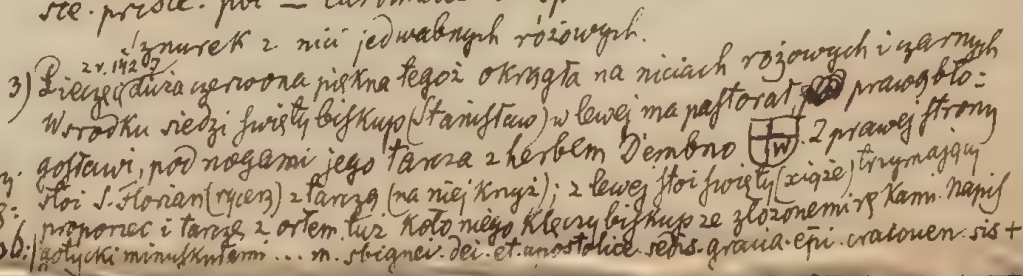 się . przście . poł —
Sznurek z nici jedwabnych różowych.
z r. 142
3) Pieczęć duża czerwona piękna tegoż okrągła na niciach rożowych i czarnych
Wsrodku siedzi święty biskup (Stanisław) w lewej ma pastorał, prawą bło:
gosławi, pod nogami jego tarcza z herbem Dembno W . Z prawej strony
stoi S. Florian (rycerz) z tarczą (na niej krzyż); z lewej stoi święty (xiąże) trzymający
proporiec i tarczę z orłem. tuż koło niego klęczy biskup ze złożonemi rękami. Napis
gotycki minuskułami ... m . sbignei . dei . et . apostolice . sedis . gracia . epi . cracouien . sis +